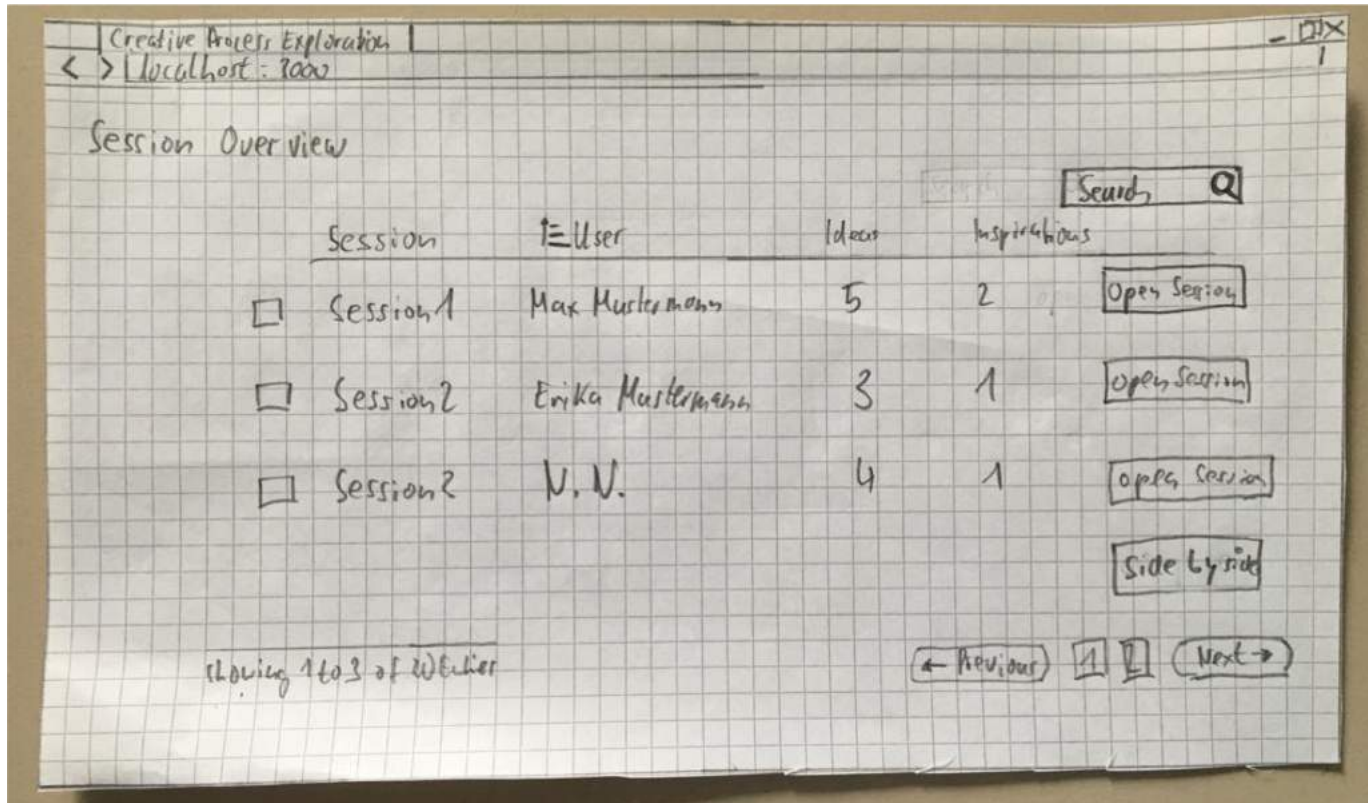 Creative Process Exploration
localhost: 3000
Session Overview
Search
Session User Ideas Inspirations
Session 1 Max Mustermann 5 2 Open Session
Session 2 Erika Mustermann 3 1 Open Session
Session 2 N.N. 4 1 Open Session
Side by side
showing 1 to 3 of Entries
← Previous 1 2 Next →